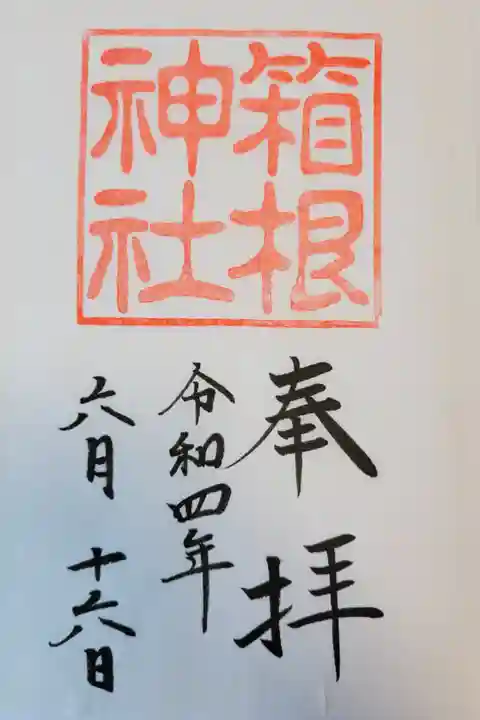 箱根
神社
奉拝
令和四年
六月十六日